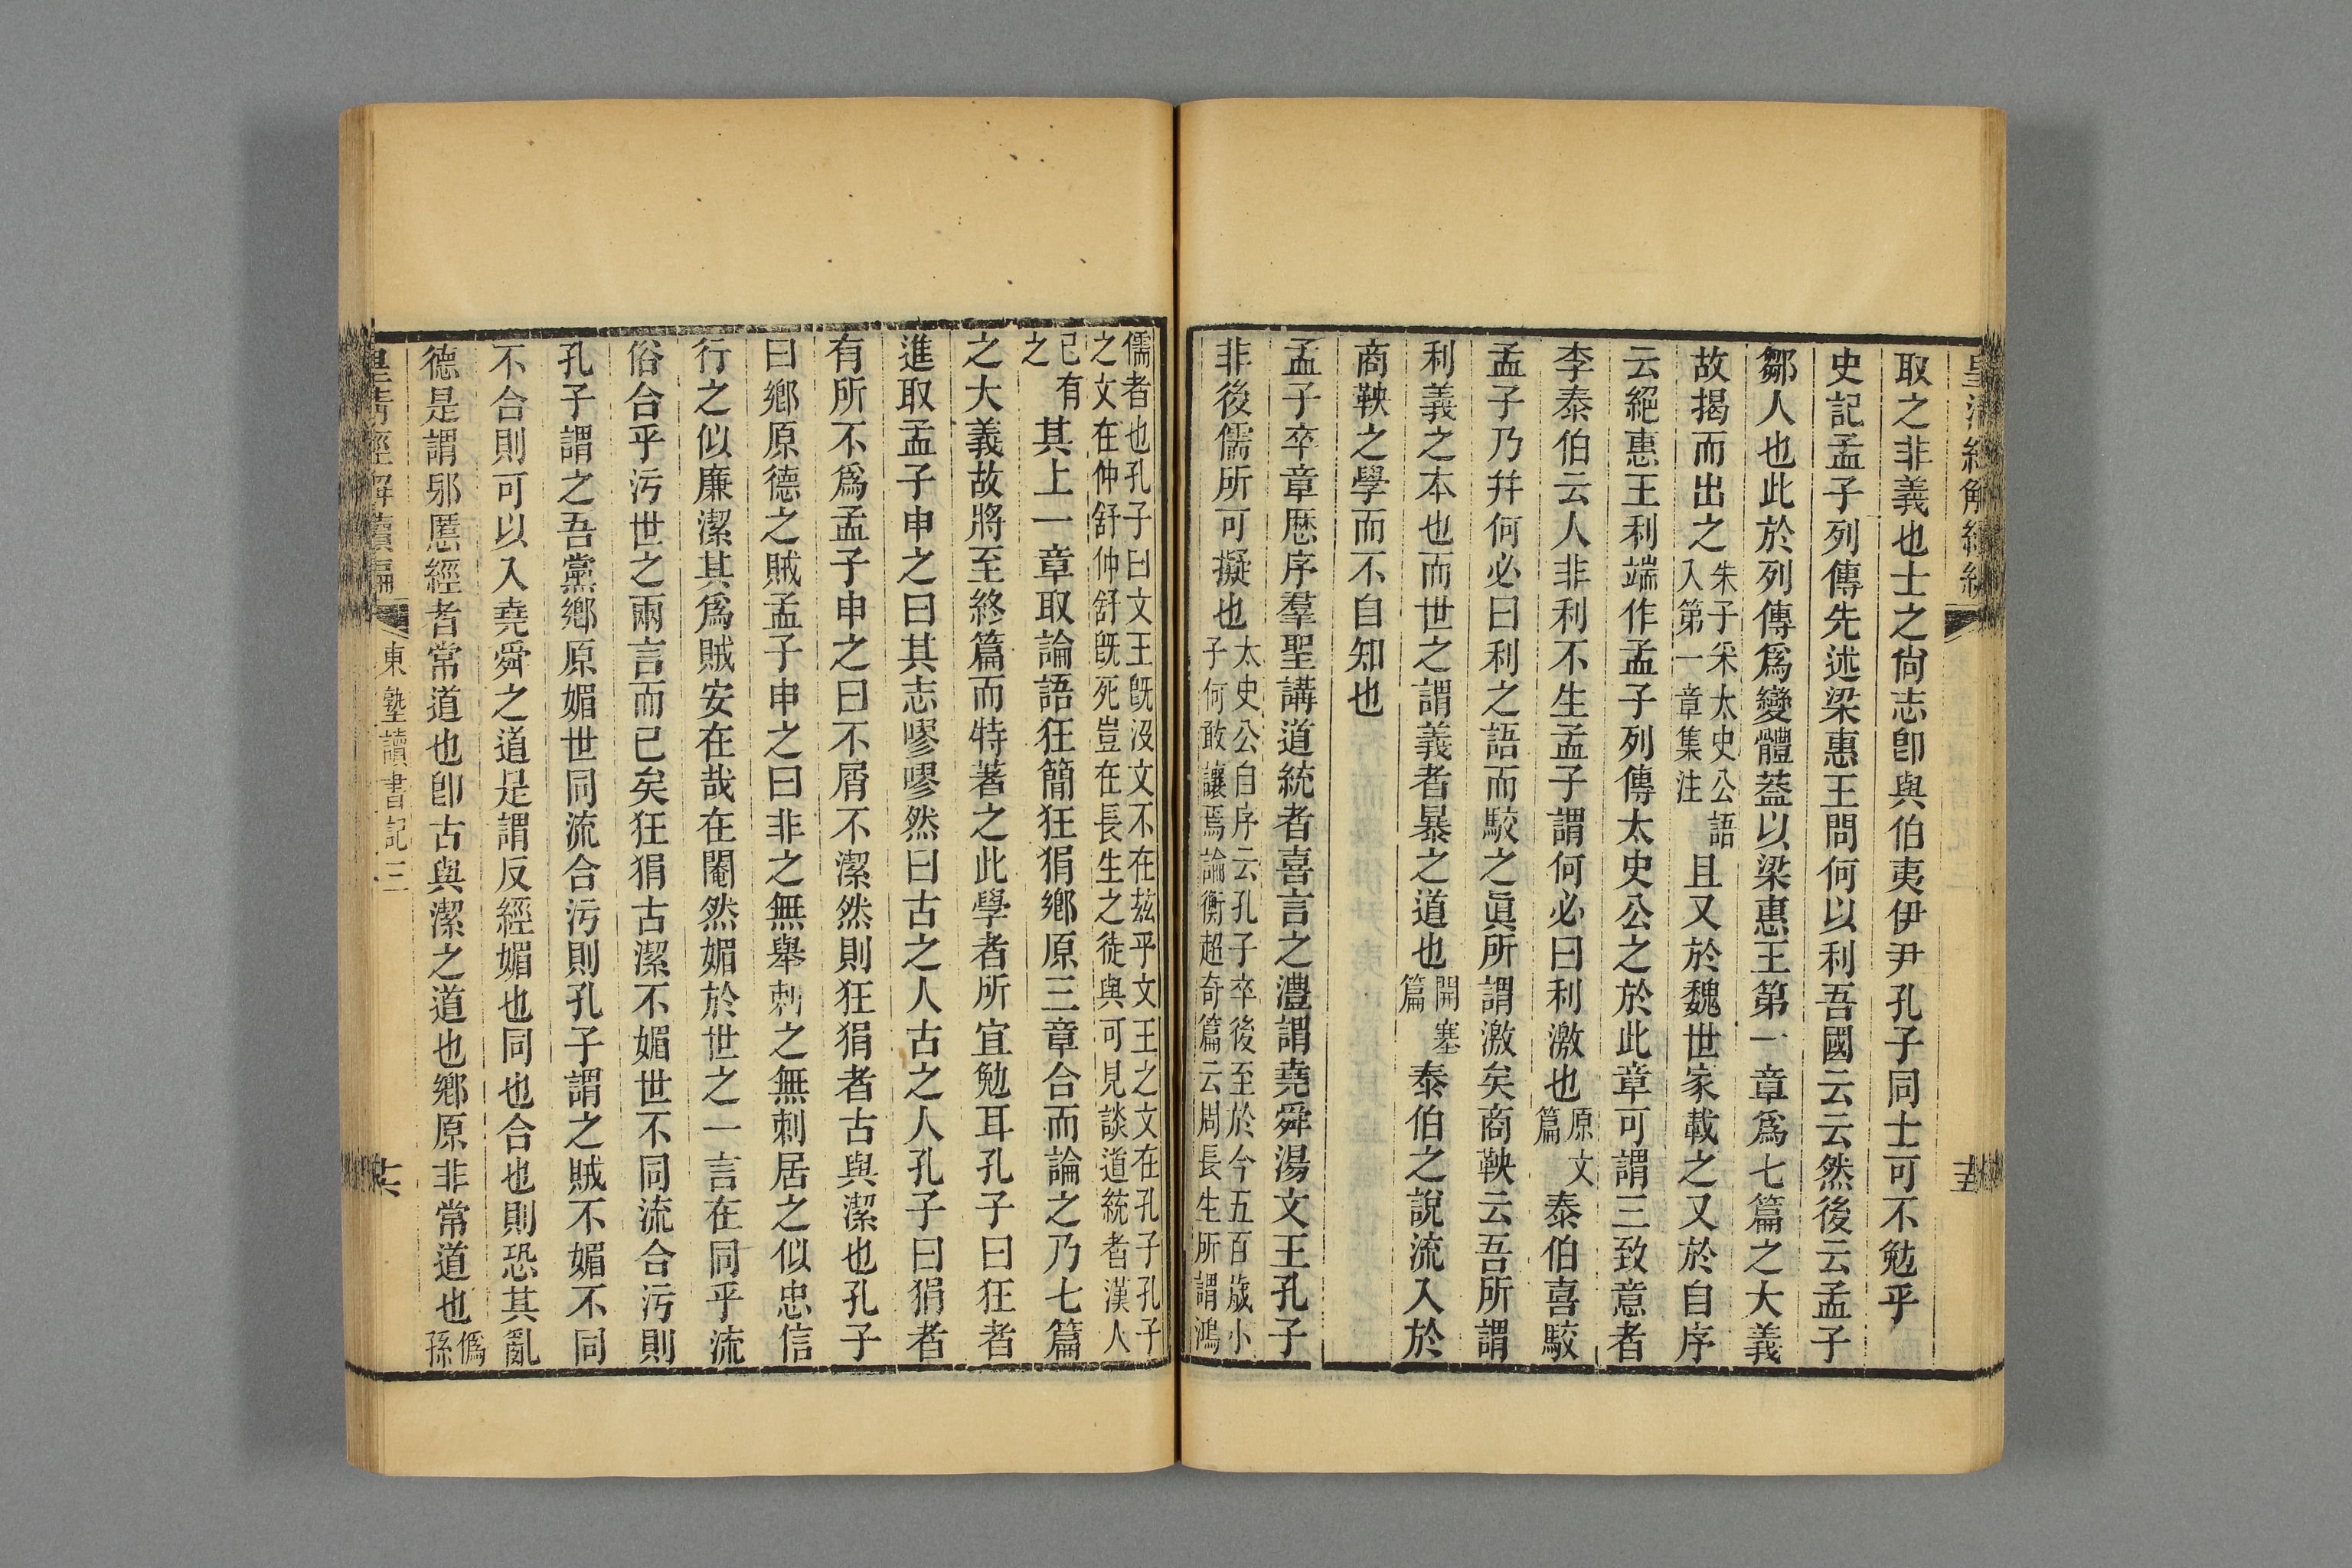 取之非義也士之尙志卽與伯夷伊尹孔子同士可不勉乎
史記孟子列傳先述梁惠王問何以利吾國云云然後云孟子
鄒人也此於列傳爲變體葢以梁惠王第一章爲七篇之大義
故揭而出之朱子采太史公語入第一章集注且又於魏世家載之又於自序
云絕惠王利端作孟子列傳太史公之於此章可謂三致意者
李泰伯云人非利不生孟子謂何必曰利激也原文篇泰伯喜駮
孟子乃幷何必曰利之語而駮之眞所謂激矣商鞅云吾所謂
利義之本也而世之謂義者暴之道也開塞篇泰伯之說流入於
商鞅之學而不自知也
孟子卒章歷序羣聖講道統者喜言之澧謂堯舜湯文王孔子
非後儒所可擬也太史公自序云孔子卒後至於今五百歲小子何敢讓焉論衡超奇篇云周長生所謂鴻
儒者也孔子曰文王旣沒文不在茲乎文王之文在孔子孔子之文在仲舒仲舒旣死豈在長生之徒與可見談道統者漢人
已有之其上一章取論語狂簡狂狷鄉原三章合而論之乃七篇
之大義故將至終篇而特著之此學者所宜勉耳孔子曰狂者
進取孟子申之曰其志嘐嘐然曰古之人古之人孔子曰狷者
有所不爲孟子申之曰不屑不潔然則狂狷者古與潔也孔子
曰鄉原德之賊孟子申之曰非之無舉刺之無刺居之似忠信
行之似廉潔其爲賊安在哉在閹然媚於世之一言在同乎流
俗合乎污世之兩言而已矣狂狷古潔不媚世不同流合污則
孔子謂之吾黨鄉原媚世同流合污則孔子謂之賊不媚不同
不合則可以入堯舜之道是謂反經媚也同也合也則恐其亂
德是謂邪慝經者常道也卽古與潔之道也鄉原非常道也僞孫
皇清經解續編 東塾讀書記三 十六